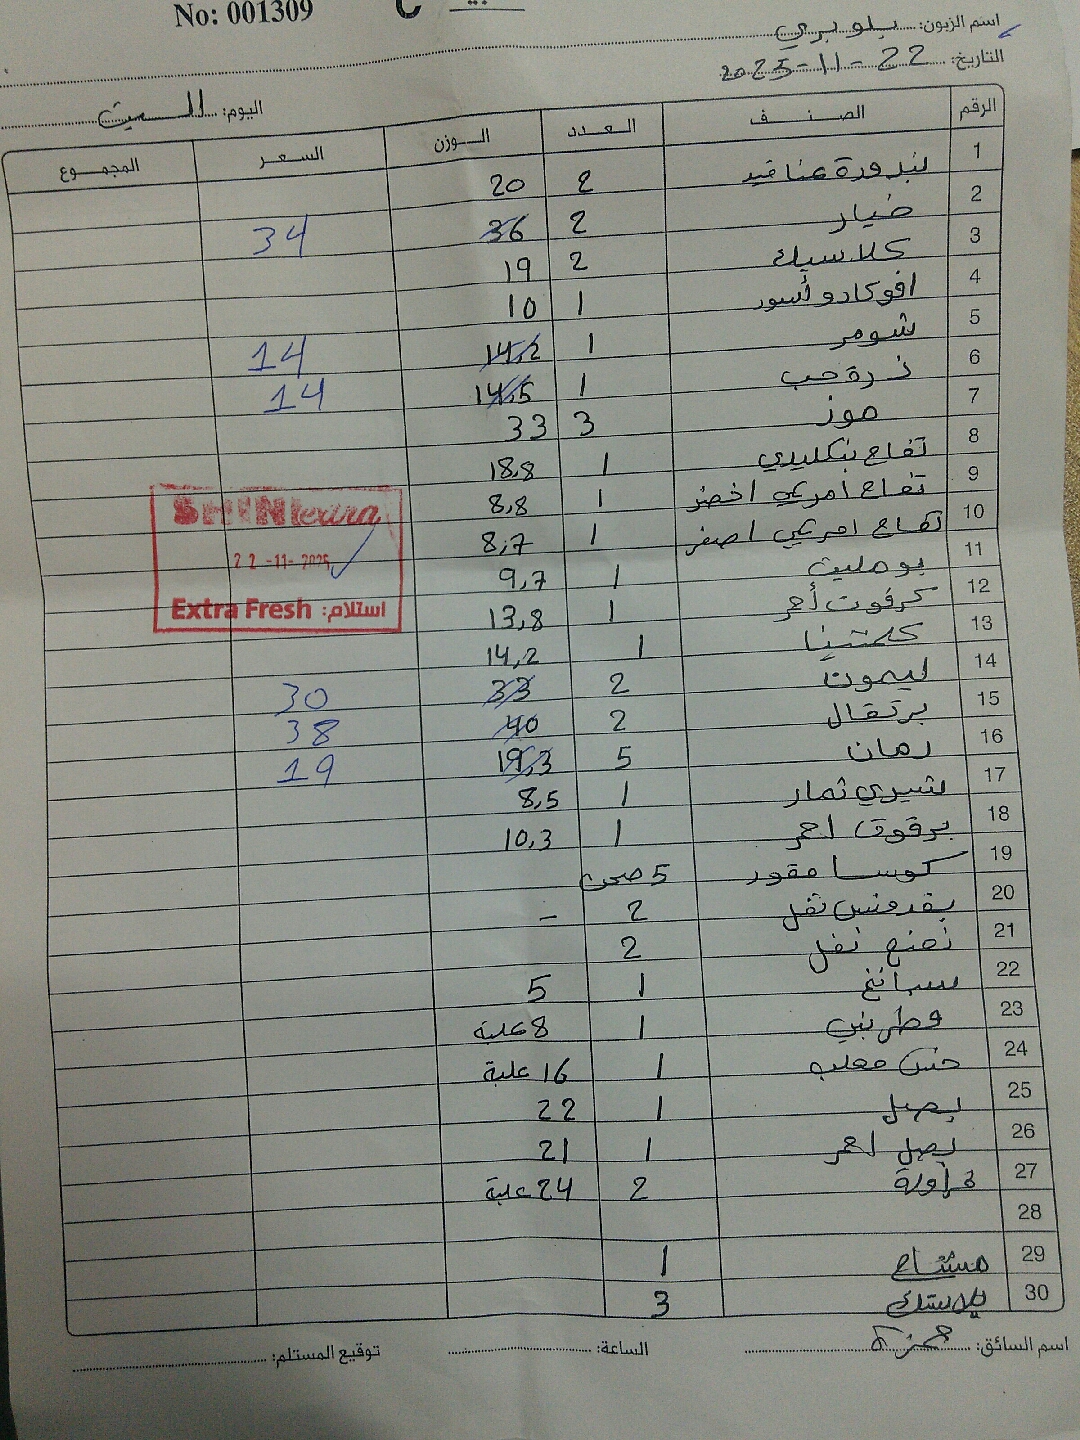 No: 001309
اسم الزبون: بلوبري
التاريخ: 22-11-2025
اليوم: السبت
الرقم الصنف العدد الوزن السعر المجموع
1 بندورة عناقيد 2 20
2 خيار 2 36 34
3 كلاسيك 2 19
4 افوكادو أسود 1 10
5 شومر 1 14,2 14
6 ذرة حب 1 14,5 14
7 موز 3 33
8 تفاح بنكليدي 1 18,8
9 تفاح امريكي اخضر 1 8,8
10 تفاح امريكي اصفر 1 8,7
11 بومليت 1 9,7
12 كرفوت أحمر 1 13,8
13 كلمنتينا 1 14,2
14 ليمون 2 33 30
15 برتقال 2 40 38
16 رمان 5 19,3 19
17 شيري تمار 1 8,5
18 برقوق احمر 1 10,3
19 كوسا مقور 5 صحن
20 بقدونس نفل 2 -
21 نعنع نفل 2
22 سبانخ 1 5
23 فطر بني 1 8 علبة
24 خس معلب 1 16 علبة
25 بصل 1 22
26 بصل احمر 1 21
27 فراولة 2 24 علبة
28
29 مشتاح 1
30 بلاستك 3
SHINI extra
22-11-2025
Extra Fresh استلام:
اسم السائق: حمزة
الساعة:
توقيع المستلم: